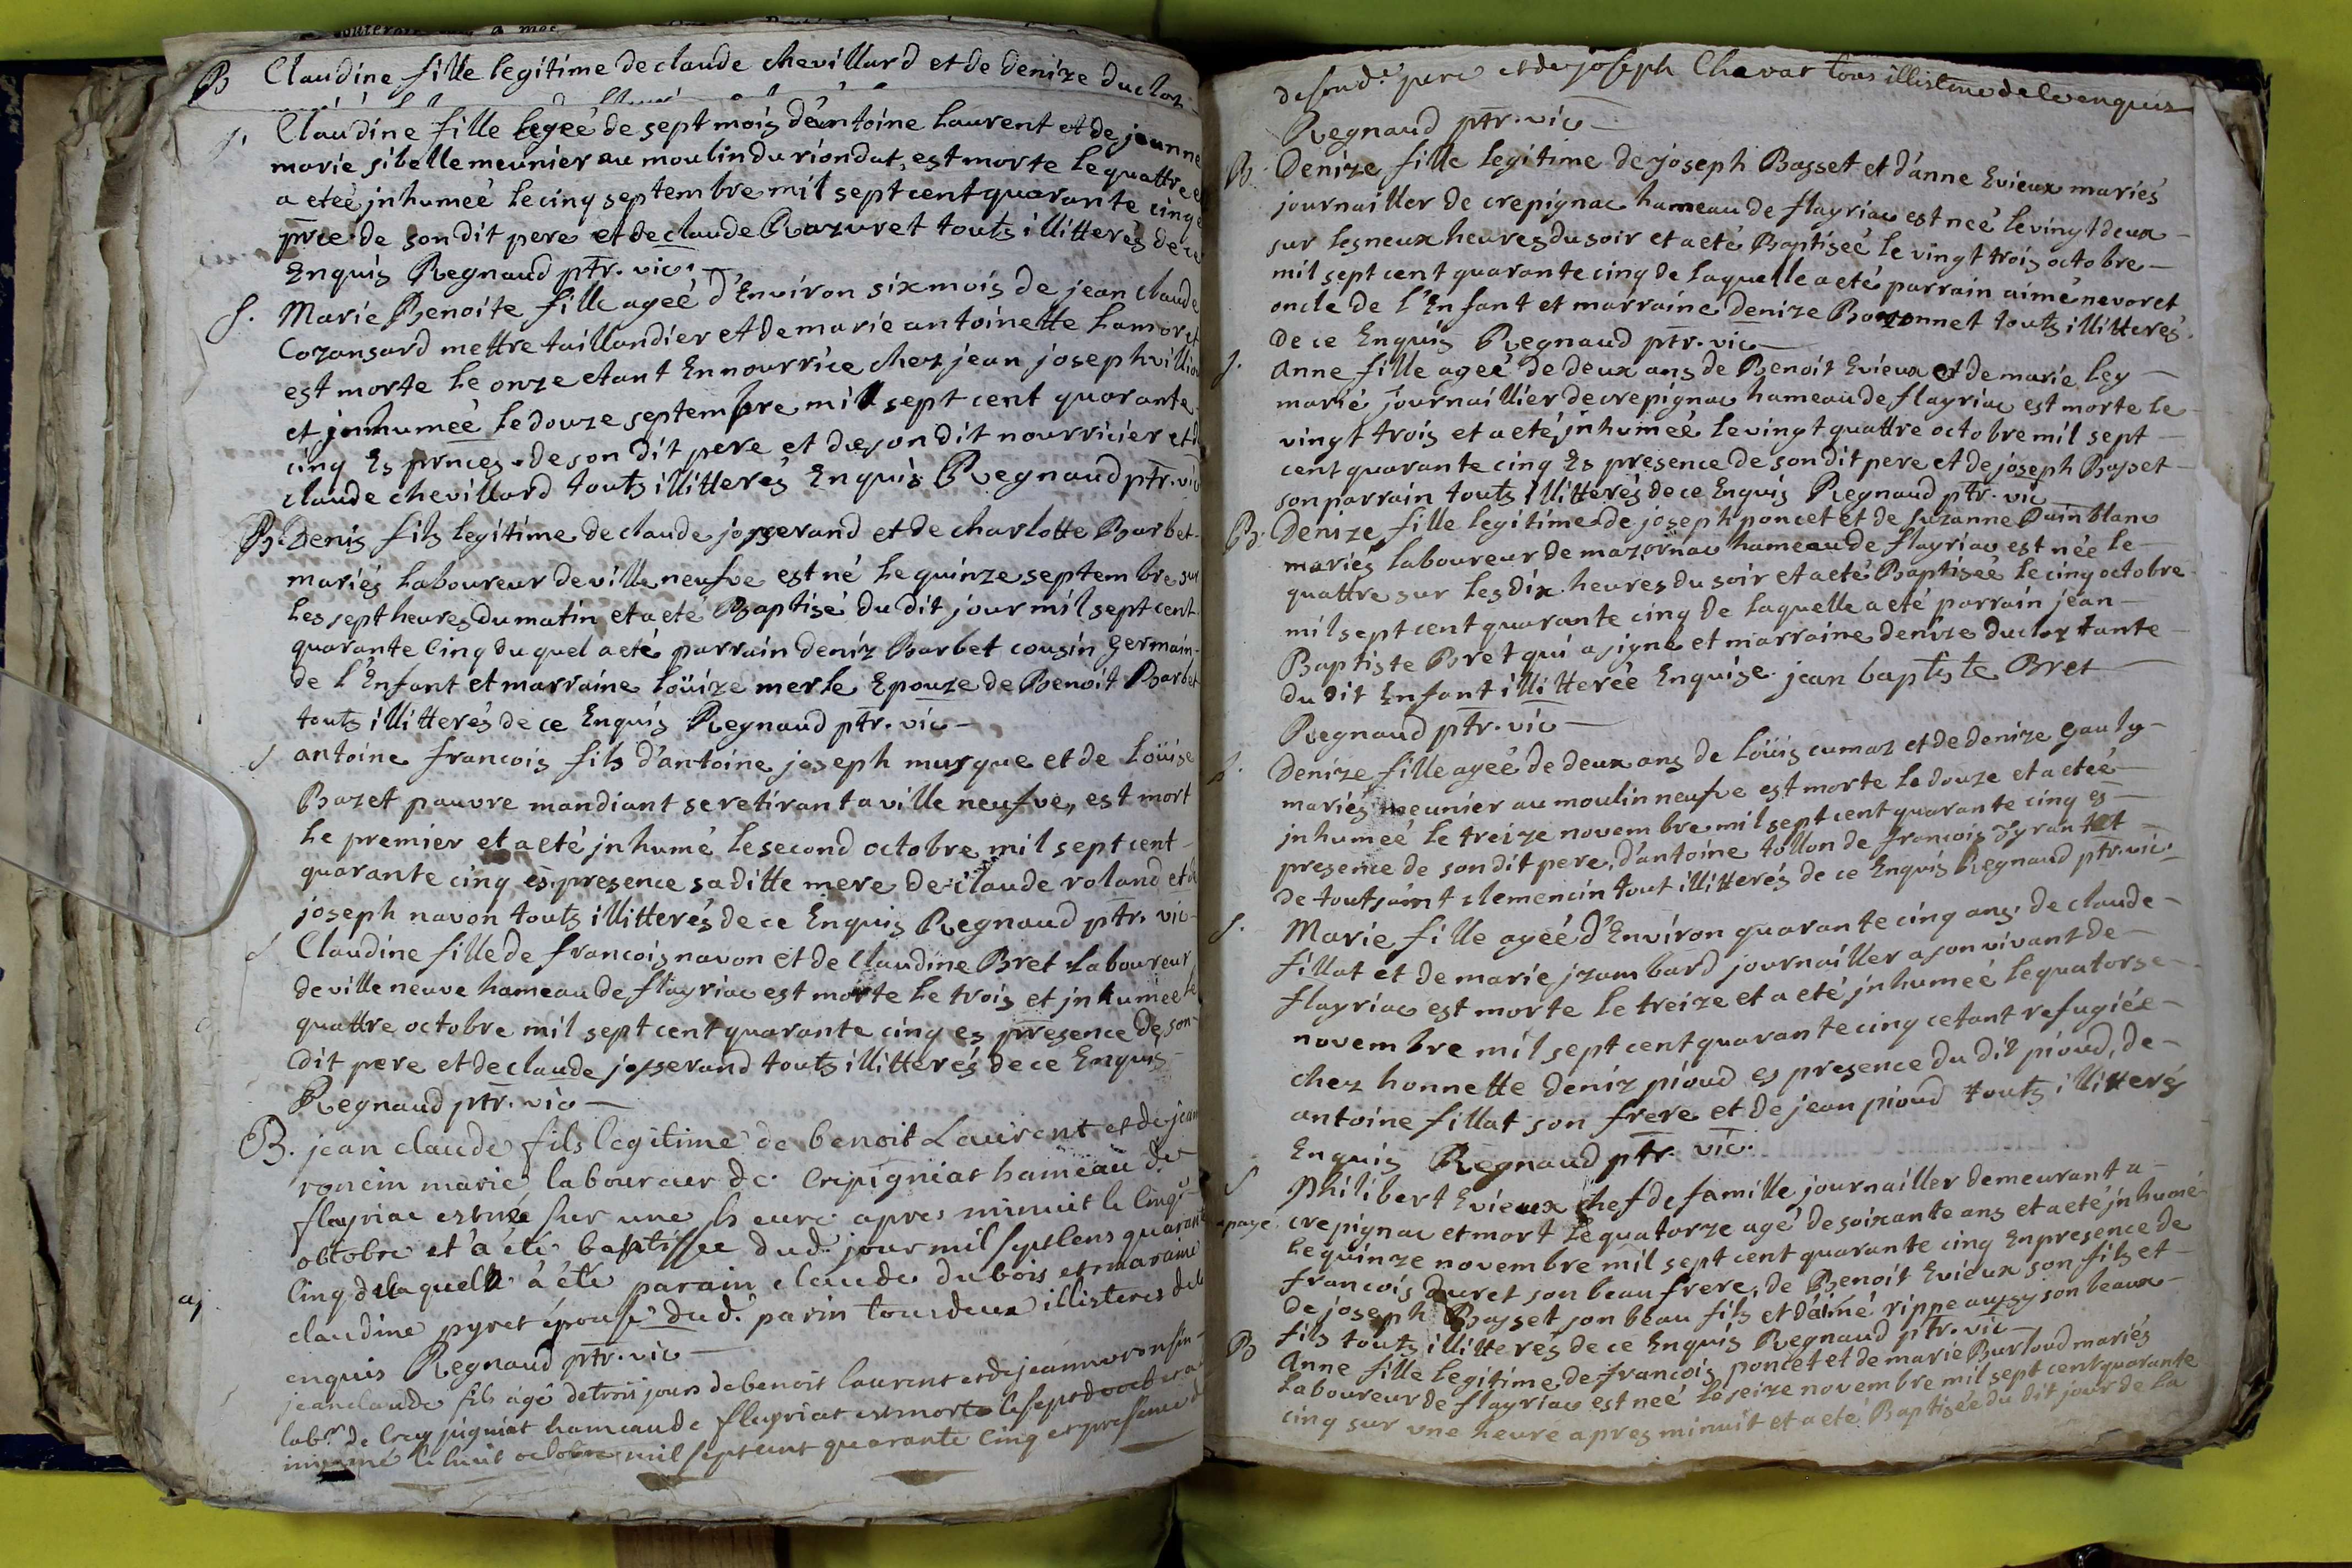 B Claudine fille legitime de claude chevillard et de denize duclos
S. Claudine fille ageé de sept mois d'antoine Laurent et de jeanne
marie sibelle meunier au moulin du riondat, est morte le quattre e
a eteé jnhumeé le cinq septembre mil sept cent quarante cinq e
prce de son dit pere et de claude Bvazuret touts illitterés de ce
Enquis Regnaud ptr. vic.
S. Marie Benoite fille ageé d'Environ six mois de jean claude
Cozansard mettre taillandier et de marie antoinette Lamoret
est morte le onze etant En nourrice chez jean joseph villion
et jnhumeé le douze septembre mil sept cent quarante
cinq Es prnces de son dit pere et de son dit nourricier et d
claude chevillard touts illitterés Enquis Regnaud ptr. vic
B. Denis fils legitime de claude josserand et de charlotte Barbet
mariés Laboureur de ville neufve est né le quinze septembre sur
les sept heures du matin et a eté Baptisé du dit jour mil sept cent
quarante Cinq du quel a eté parrain deniz Barbet cousin germain
de l'Enfant et marraine Loüize merle Epouze de Benoit Barbet
touts illitterés de ce Enquis Regnaud ptr. vic
S antoine francois fils d'antoine joseph musque et de Loüise
Bazet pauvre mandiant se retirant a ville neufve, est mort
le premier et a eté jnhumé le second octobre mil sept cent
quarante cinq es presence sa ditte mere de claude roland et de
joseph navon touts illitterés de ce Enquis Regnaud ptr. vic
S Claudine fille de francois navon et de Claudine Bret Laboureur
de ville neuve hameau de flayriac est morte le trois et jnhumeé le
quattre octobre mil sept cent quarante cinq es presence de son
dit pere et de claude josserand touts illitterés de ce Enquis
Regnaud ptr. vic
B. jean claude fils legitime de benoit Laurent et de jean
roncin marié laboureur de Crepigniat hameau de
flayriac est né sur une heure apres minuit le Cinq
octobre et a été baptissee dud. jour mil sept Cens quarant
Cinq de la quelle a été parain claude dubois et maraine
claudine pyret épouse dud. parin tous deux illisteres de
enquis Regnaud ptr. vic
jean claude fils agé de trois jours de benoit laurent et de jeanne ronsin
labr. de Crepigniat hameau de flayriat est mort le sept
inhumé le huit octobre mil sept cent quarante Cinq es presence d
de sond. pere et de joseph Chavat tous illistere de ce enquis
Regnaud ptr. vic
B. Denize fille legitime de joseph Basset et d'anne Evieux mariés
journaillier de crepignac hameau de flayriac est neé le vingt deux
sur les neux heures du soir et a eté Baptiseé le vingt trois octobre
mil sept cent quarante cinq de laquelle a eté parrain aimé nevoret
oncle de l'Enfant et marraine denize Bozonnet touts illitterés
de ce Enquis Regnaud ptr. vic
S. anne fille ageé de deux ans de Benoit Evieux et de marie ley
marié journaillier de crepignac hameau de flayriac est morte le
vingt trois et a eté jnhumeé le vingt quattre octobre mil sept
cent quarante cinq Es presence de son dit pere et de joseph Basset
son parrain touts illitterés de ce Enquis Regnaud ptr. vic
B. Denize fille legitime de joseph poncet et de suzanne Pain blanc
mariés laboureur de mazornac hameau de flayriac est née le
quattre sur les dix heures du soir et a eté Baptiseé le cinq octobre
mil sept cent quarante cinq de laquelle a eté parrain jean
Baptiste Bret qui a signé et marraine denize duclos tante
du dit Enfant illitterée Enquise jean baptiste Bret
Regnaud ptr. vic
S. Denize fille ageé de deux ans de Loüis cumaz et de denize gauty
mariés meunier au moulin neufve est morte le douze et a eteé
jnhumeé le treize novembre mil sept cent quarante cinq es
presence de son dit pere, d'antoine tollon de francois et
de toutsaint clemencin tout illitterés de ce Enquis Regnaud ptr. vic.
S. Marie fille ageé d'Environ quarante cinq ans de claude
fillat et de marie jzambard journaillier a son vivant de
flayriac est morte le treize et a eté jnhumeé le quatorse
novembre mil sept cent quarante cinq cetant refugiée
chez honnette deniz pioud es presence du dit pioud, de
antoine fillat son frere et de jean pioud touts illitterés
Enquis Regnaud ptr. vic.
S Philibert Evieux chef de famille journaillier demeurant a
paye crepignac et mort le quatorze agé de soixante ans et a eté jnhumé
le quinze novembre mil sept cent quarante cinq En presence de
francois duret son beau frere, de Benoit Evieux son fils et
de joseph Basset son beau fils et d'aimé rippe aussy son beaux
fils touts illitterés de ce Enquis Regnaud ptr. vic
B Anne fille legitime de francois poncet et de marie Burloud mariés
Laboureur de flayriac est neé le seize novembre mil sept cent quarante
cinq sur vne heure apres minuit et a eté Baptisée du dit jour de la